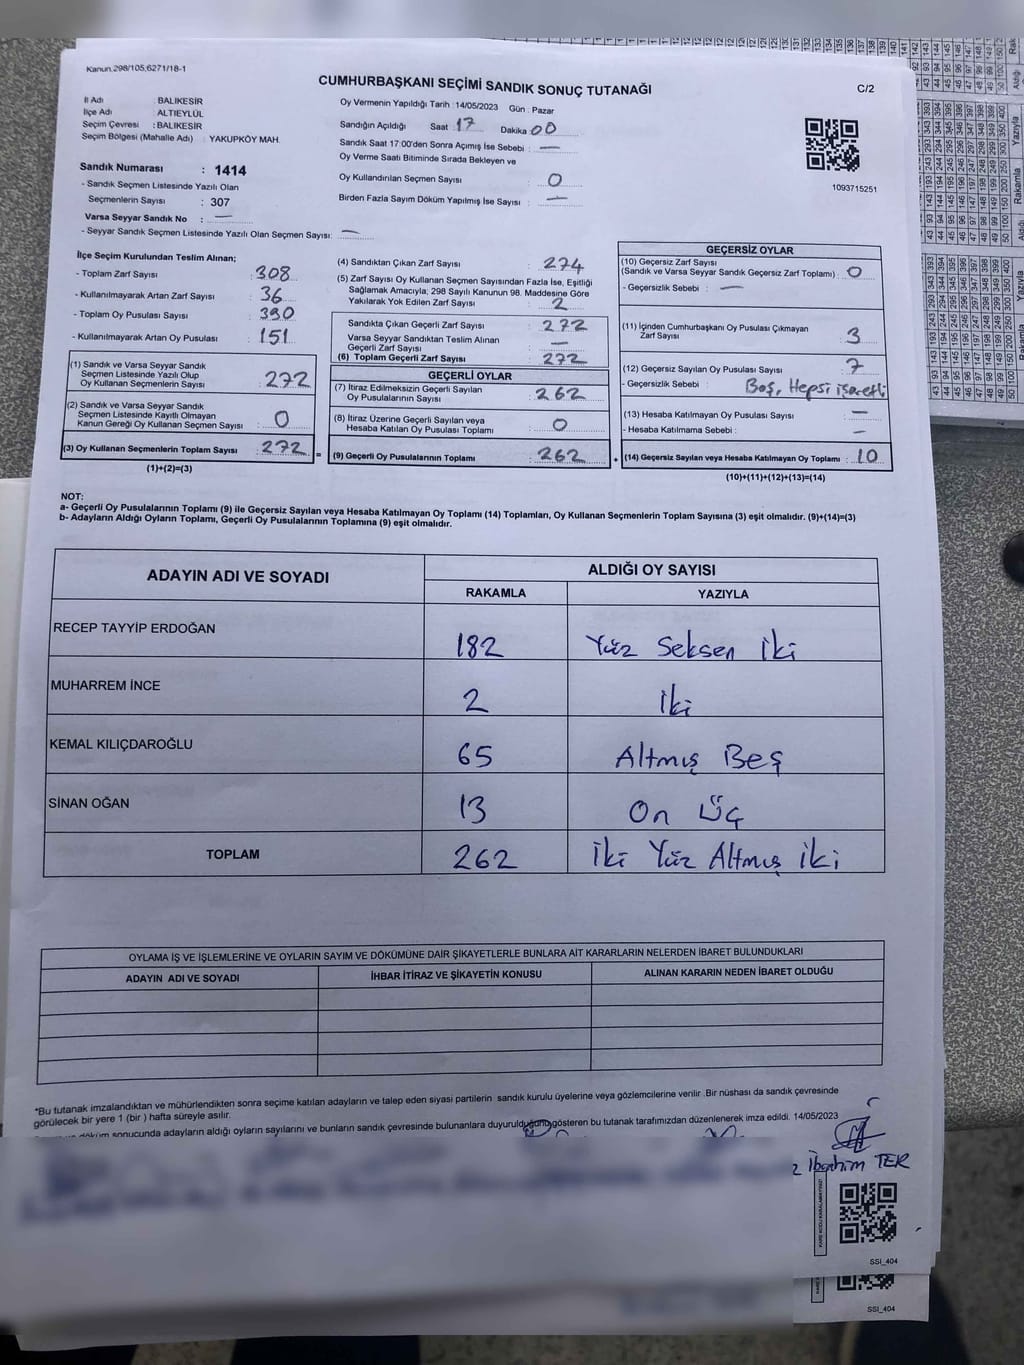 Kanun.298/105,6271/18-1
CUMHURBAŞKANI SEÇİMİ SANDIK SONUÇ TUTANAĞI
C/2
İl Adı : BALIKESİR
İlçe Adı : ALTIEYLÜL
Seçim Çevresi : BALIKESİR
Seçim Bölgesi (Mahalle Adı) : YAKUPKÖY MAH.
Oy Vermenin Yapıldığı Tarih :14/05/2023 Gün : Pazar
Sandığın Açıldığı Saat 17 Dakika 00
Sandık Saat 17:00'den Sonra Açımış İse Sebebi : —
Oy Verme Saati Bitiminde Sırada Bekleyen ve
Oy Kullandırılan Seçmen Sayısı : 0
Birden Fazla Sayım Döküm Yapılmış İse Sayısı : —
1093715251
Sandık Numarası : 1414
- Sandık Seçmen Listesinde Yazılı Olan
Seçmenlerin Sayısı : 307
Varsa Seyyar Sandık No : —
- Seyyar Sandık Seçmen Listesinde Yazılı Olan Seçmen Sayısı: —
İlçe Seçim Kurulundan Teslim Alınan;
- Toplam Zarf Sayısı : 308
- Kullanılmayarak Artan Zarf Sayısı : 36
- Toplam Oy Pusulası Sayısı :
- Kullanılmayarak Artan Oy Pusulası : 151
(1) Sandık ve Varsa Seyyar Sandık
Seçmen Listesinde Yazılı Olup
Oy Kullanan Seçmenlerin Sayısı : 272
(2) Sandık ve Varsa Seyyar Sandık
Seçmen Listesinde Kayıtlı Olmayan
Kanun Gereği Oy Kullanan Seçmen Sayısı : 0
(3) Oy Kullanan Seçmenlerin Toplam Sayısı : 272 =
(1)+(2)=(3)
(4) Sandıktan Çıkan Zarf Sayısı : 274
(5) Zarf Sayısı Oy Kullanan Seçmen Sayısından Fazla İse, Eşitliği
Sağlamak Amacıyla; 298 Sayılı Kanunun 98. Maddesine Göre
Yakılarak Yok Edilen Zarf Sayısı : 2
Sandıkta Çıkan Geçerli Zarf Sayısı : 272
Varsa Seyyar Sandıktan Teslim Alınan
Geçerli Zarf Sayısı : —
(6) Toplam Geçerli Zarf Sayısı : 272
GEÇERLİ OYLAR
(7) İtiraz Edilmeksizin Geçerli Sayılan
Oy Pusulalarının Sayısı : 262
(8) İtiraz Üzerine Geçerli Sayılan veya
Hesaba Katılan Oy Pusulası Toplamı : 0
(9) Geçerli Oy Pusulalarının Toplamı : 262 +
GEÇERSİZ OYLAR
(10) Geçersiz Zarf Sayısı
(Sandık ve Varsa Seyyar Sandık Geçersiz Zarf Toplamı) : 0
- Geçersizlik Sebebi : —
(11) İçinden Cumhurbaşkanı Oy Pusulası Çıkmayan
Zarf Sayısı : 3
(12) Geçersiz Sayılan Oy Pusulası Sayısı : 7
- Geçersizlik Sebebi : Boş, Hepsi işaretli
(13) Hesaba Katılmayan Oy Pusulası Sayısı : —
- Hesaba Katılmama Sebebi : —
(14) Geçersiz Sayılan veya Hesaba Katılmayan Oy Toplamı : 10
(10)+(11)+(12)+(13)=(14)
NOT:
a- Geçerli Oy Pusulalarının Toplamı (9) ile Geçersiz Sayılan veya Hesaba Katılmayan Oy Toplamı (14) Toplamları, Oy Kullanan Seçmenlerin Toplam Sayısına (3) eşit olmalıdır. (9)+(14)=(3)
b- Adayların Aldığı Oyların Toplamı, Geçerli Oy Pusulalarının Toplamına (9) eşit olmalıdır.
ADAYIN ADI VE SOYADI
ALDIĞI OY SAYISI
RAKAMLA YAZIYLA
RECEP TAYYİP ERDOĞAN 182 Yüz Seksen İki
MUHARREM İNCE 2 İki
KEMAL KILIÇDAROĞLU 65 Altmış Beş
SİNAN OĞAN 13 On Üç
TOPLAM 262 İki Yüz Altmış İki
OYLAMA İŞ VE İŞLEMLERİNE VE OYLARIN SAYIM VE DÖKÜMÜNE DAİR ŞİKAYETLERLE BUNLARA AİT KARARLARIN NELERDEN İBARET BULUNDUKLARI
ADAYIN ADI VE SOYADI İHBAR İTİRAZ VE ŞİKAYETİN KONUSU ALINAN KARARIN NEDEN İBARET OLDUĞU
*Bu tutanak imzalandıktan ve mühürlendikten sonra seçime katılan adayların ve talep eden siyasi partilerin sandık kurulu üyelerine veya gözlemcilerine verilir .Bir nüshası da sandık çevresinde
görülecek bir yere 1 (bir ) hafta süreyle asılır.
döküm sonucunda adayların aldığı oyların sayılarını ve bunların sandık çevresinde bulunanlara duyurulduğunu gösteren bu tutanak tarafımızdan düzenlenerek imza edildi. 14/05/2023
İbrahim TEK
SSI_404
SSI_404